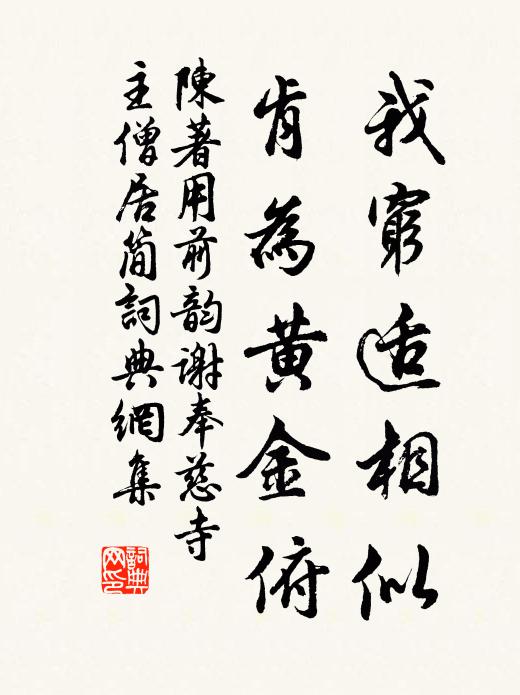 我窮适相似
肯為黃金俯
陳著用前韵謝奉慈寺
主僧居簡詞典網集
詞典网印